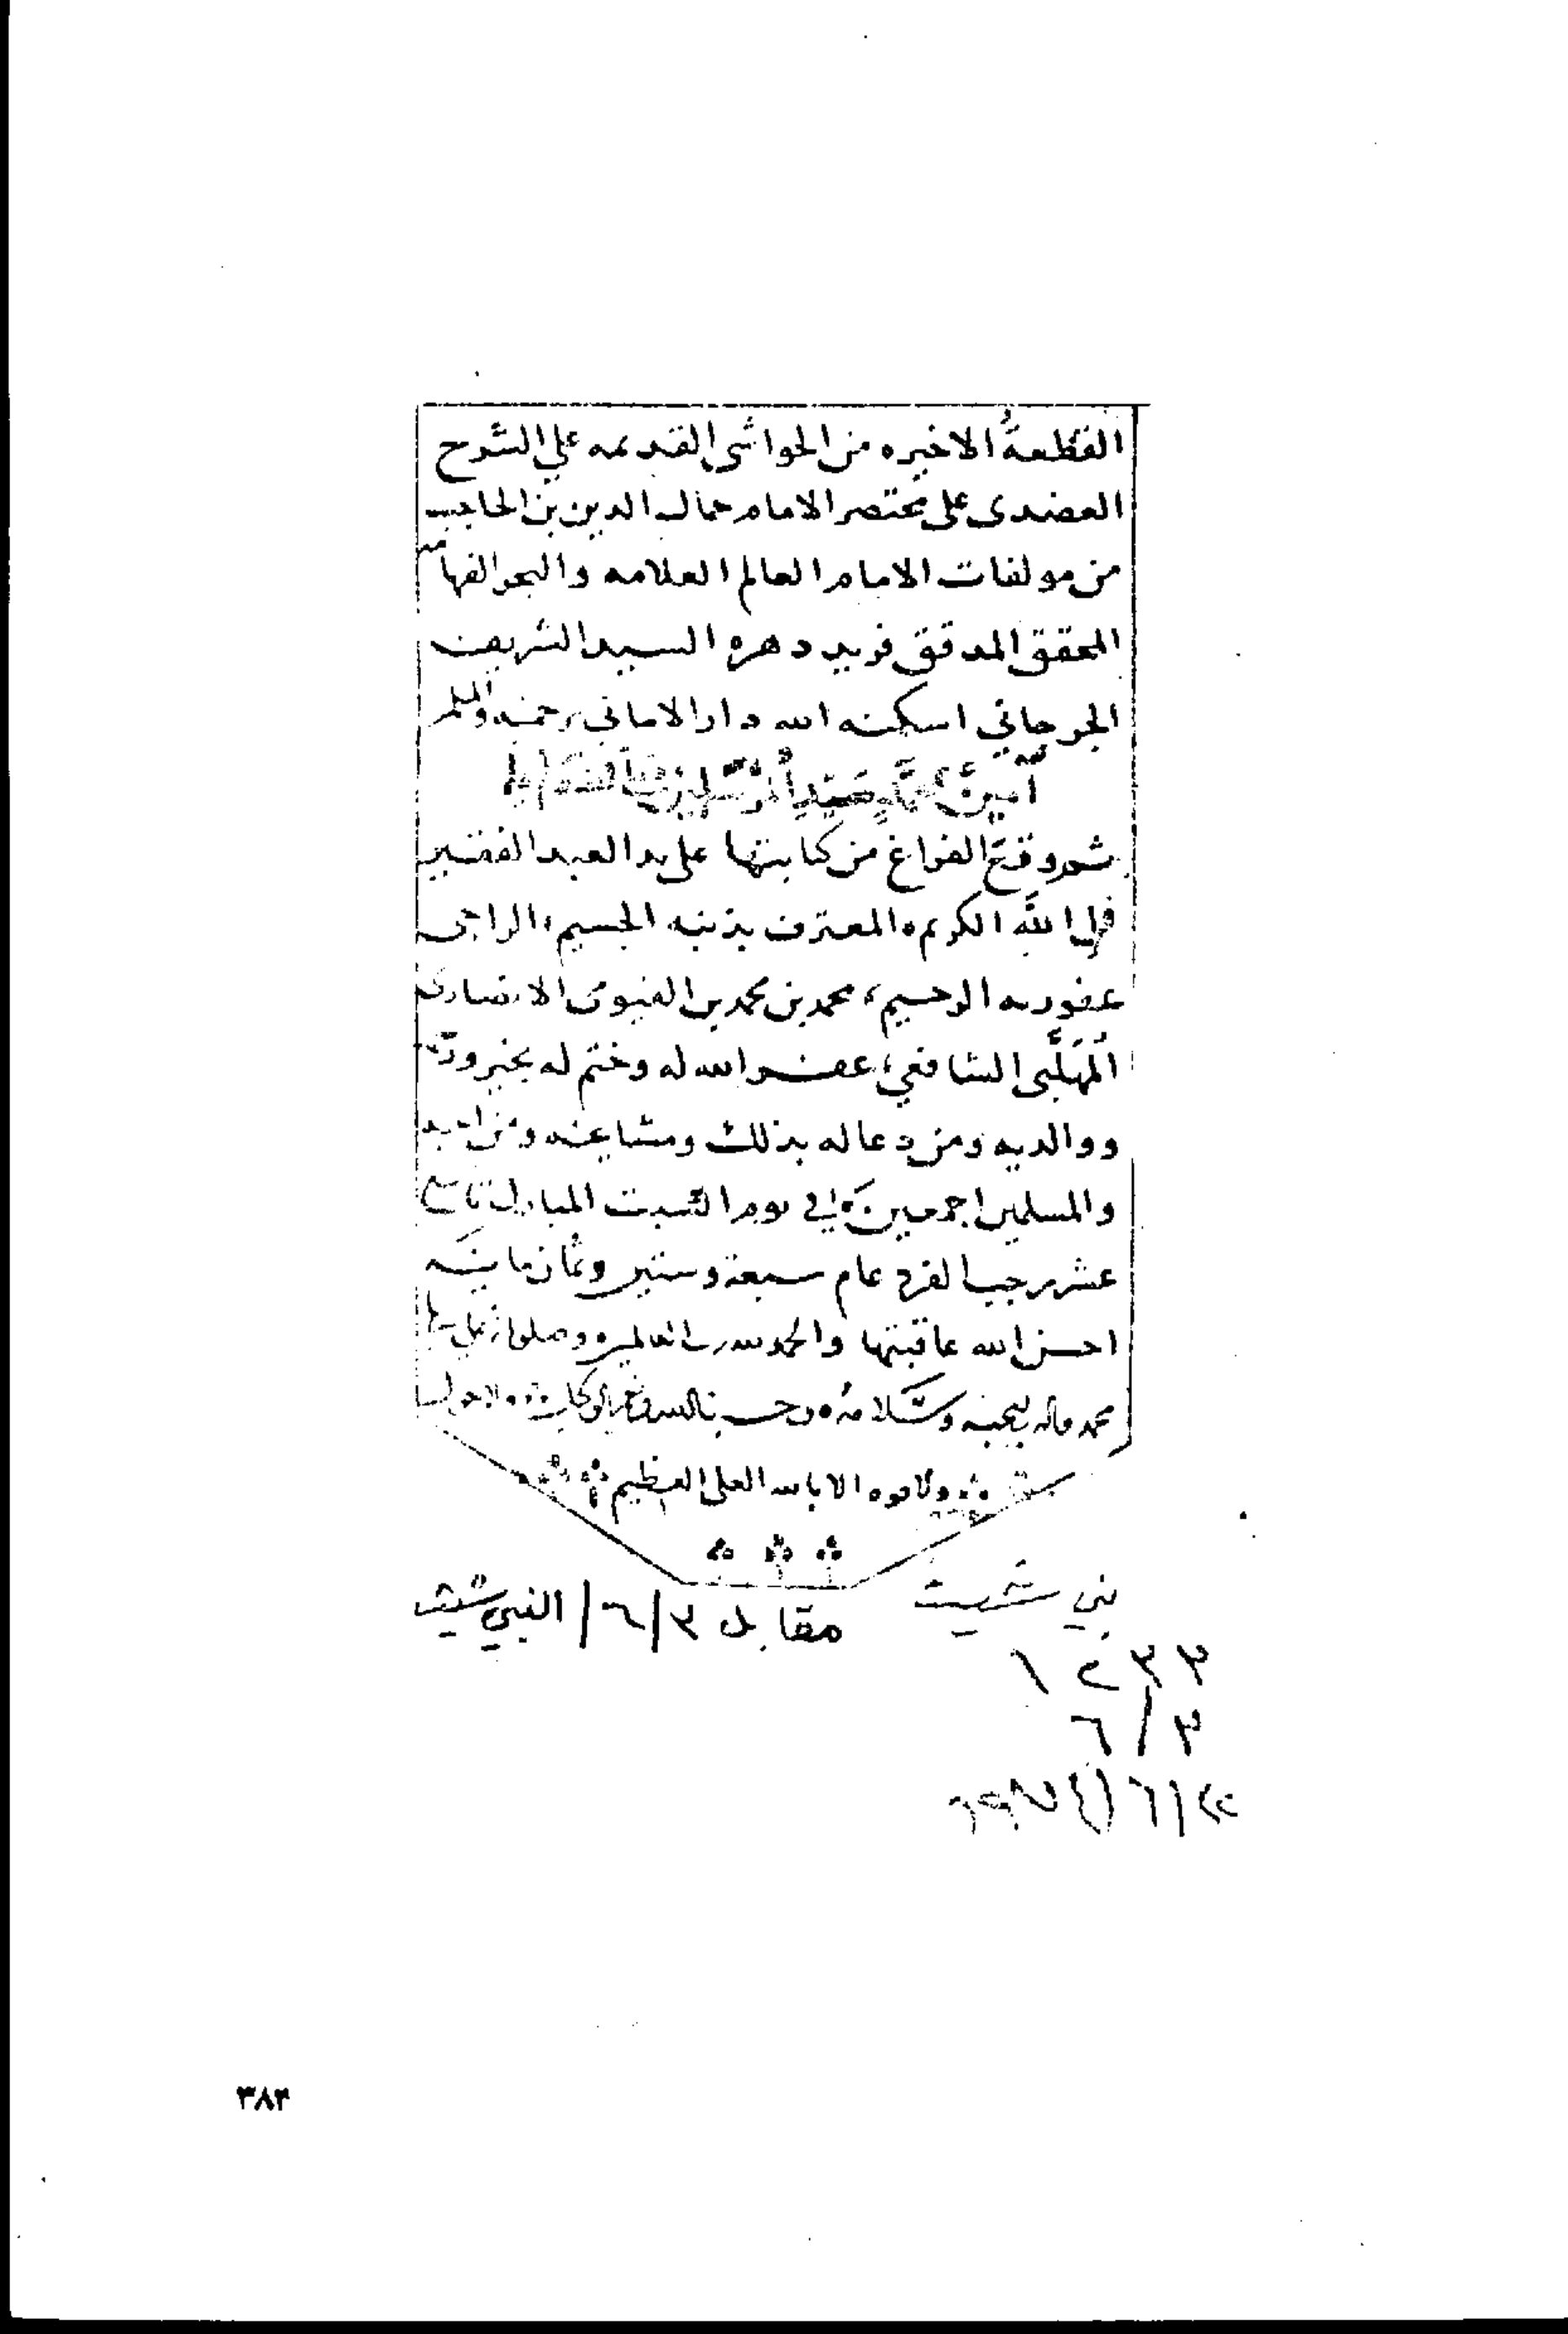 القطعةُ الاخيره من الحواشى القديمه علي الشرح
العضدى على مختصر الامام جمال الدين بن الحاجب
من مولفات الامام العالم العلامه والبحر الفهامه
المحقق المدقق فريد دهره السيد الشريف
الجرجاني اسكنه الله دار الاماني برحمته
آمين سيد المرسلين
وقع الفراغ من كتابتها على يد العبد الفقير
الله الكريم المعترف بذنبه الجسيم، الراجى
عفو ربه الرحيم، محمد بن محمد بن الفيومى الانصارى
المُهَلَّبى الشافعي، غفر الله له وختم له بخير
ووالديه ومن دعا له بذلك ومشايخه ومن
والمسلمين اجمعين في يوم السبت المبارك تاسع
عشر رجب الفرد عام سبعة وستين وثمان مايه
احسن الله عاقبتها والحمد لله رب العالمين وصلواته على
محمد واله وصحبه وسلامه وحسبنا الله ونعم الوكيل ولا حول
ولا قوه الا بالله العلى العظيم
بني شيت
مقابل ٣/٦/ النبي شيت
١٢٣٣
٦/٣
٣٨٣